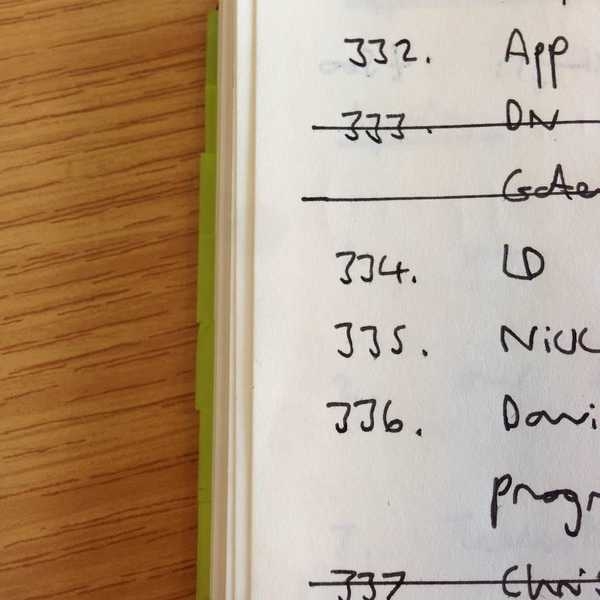 332. App
333. DN
334. LD
335. Nick
336. Davi
progr
337 Chris